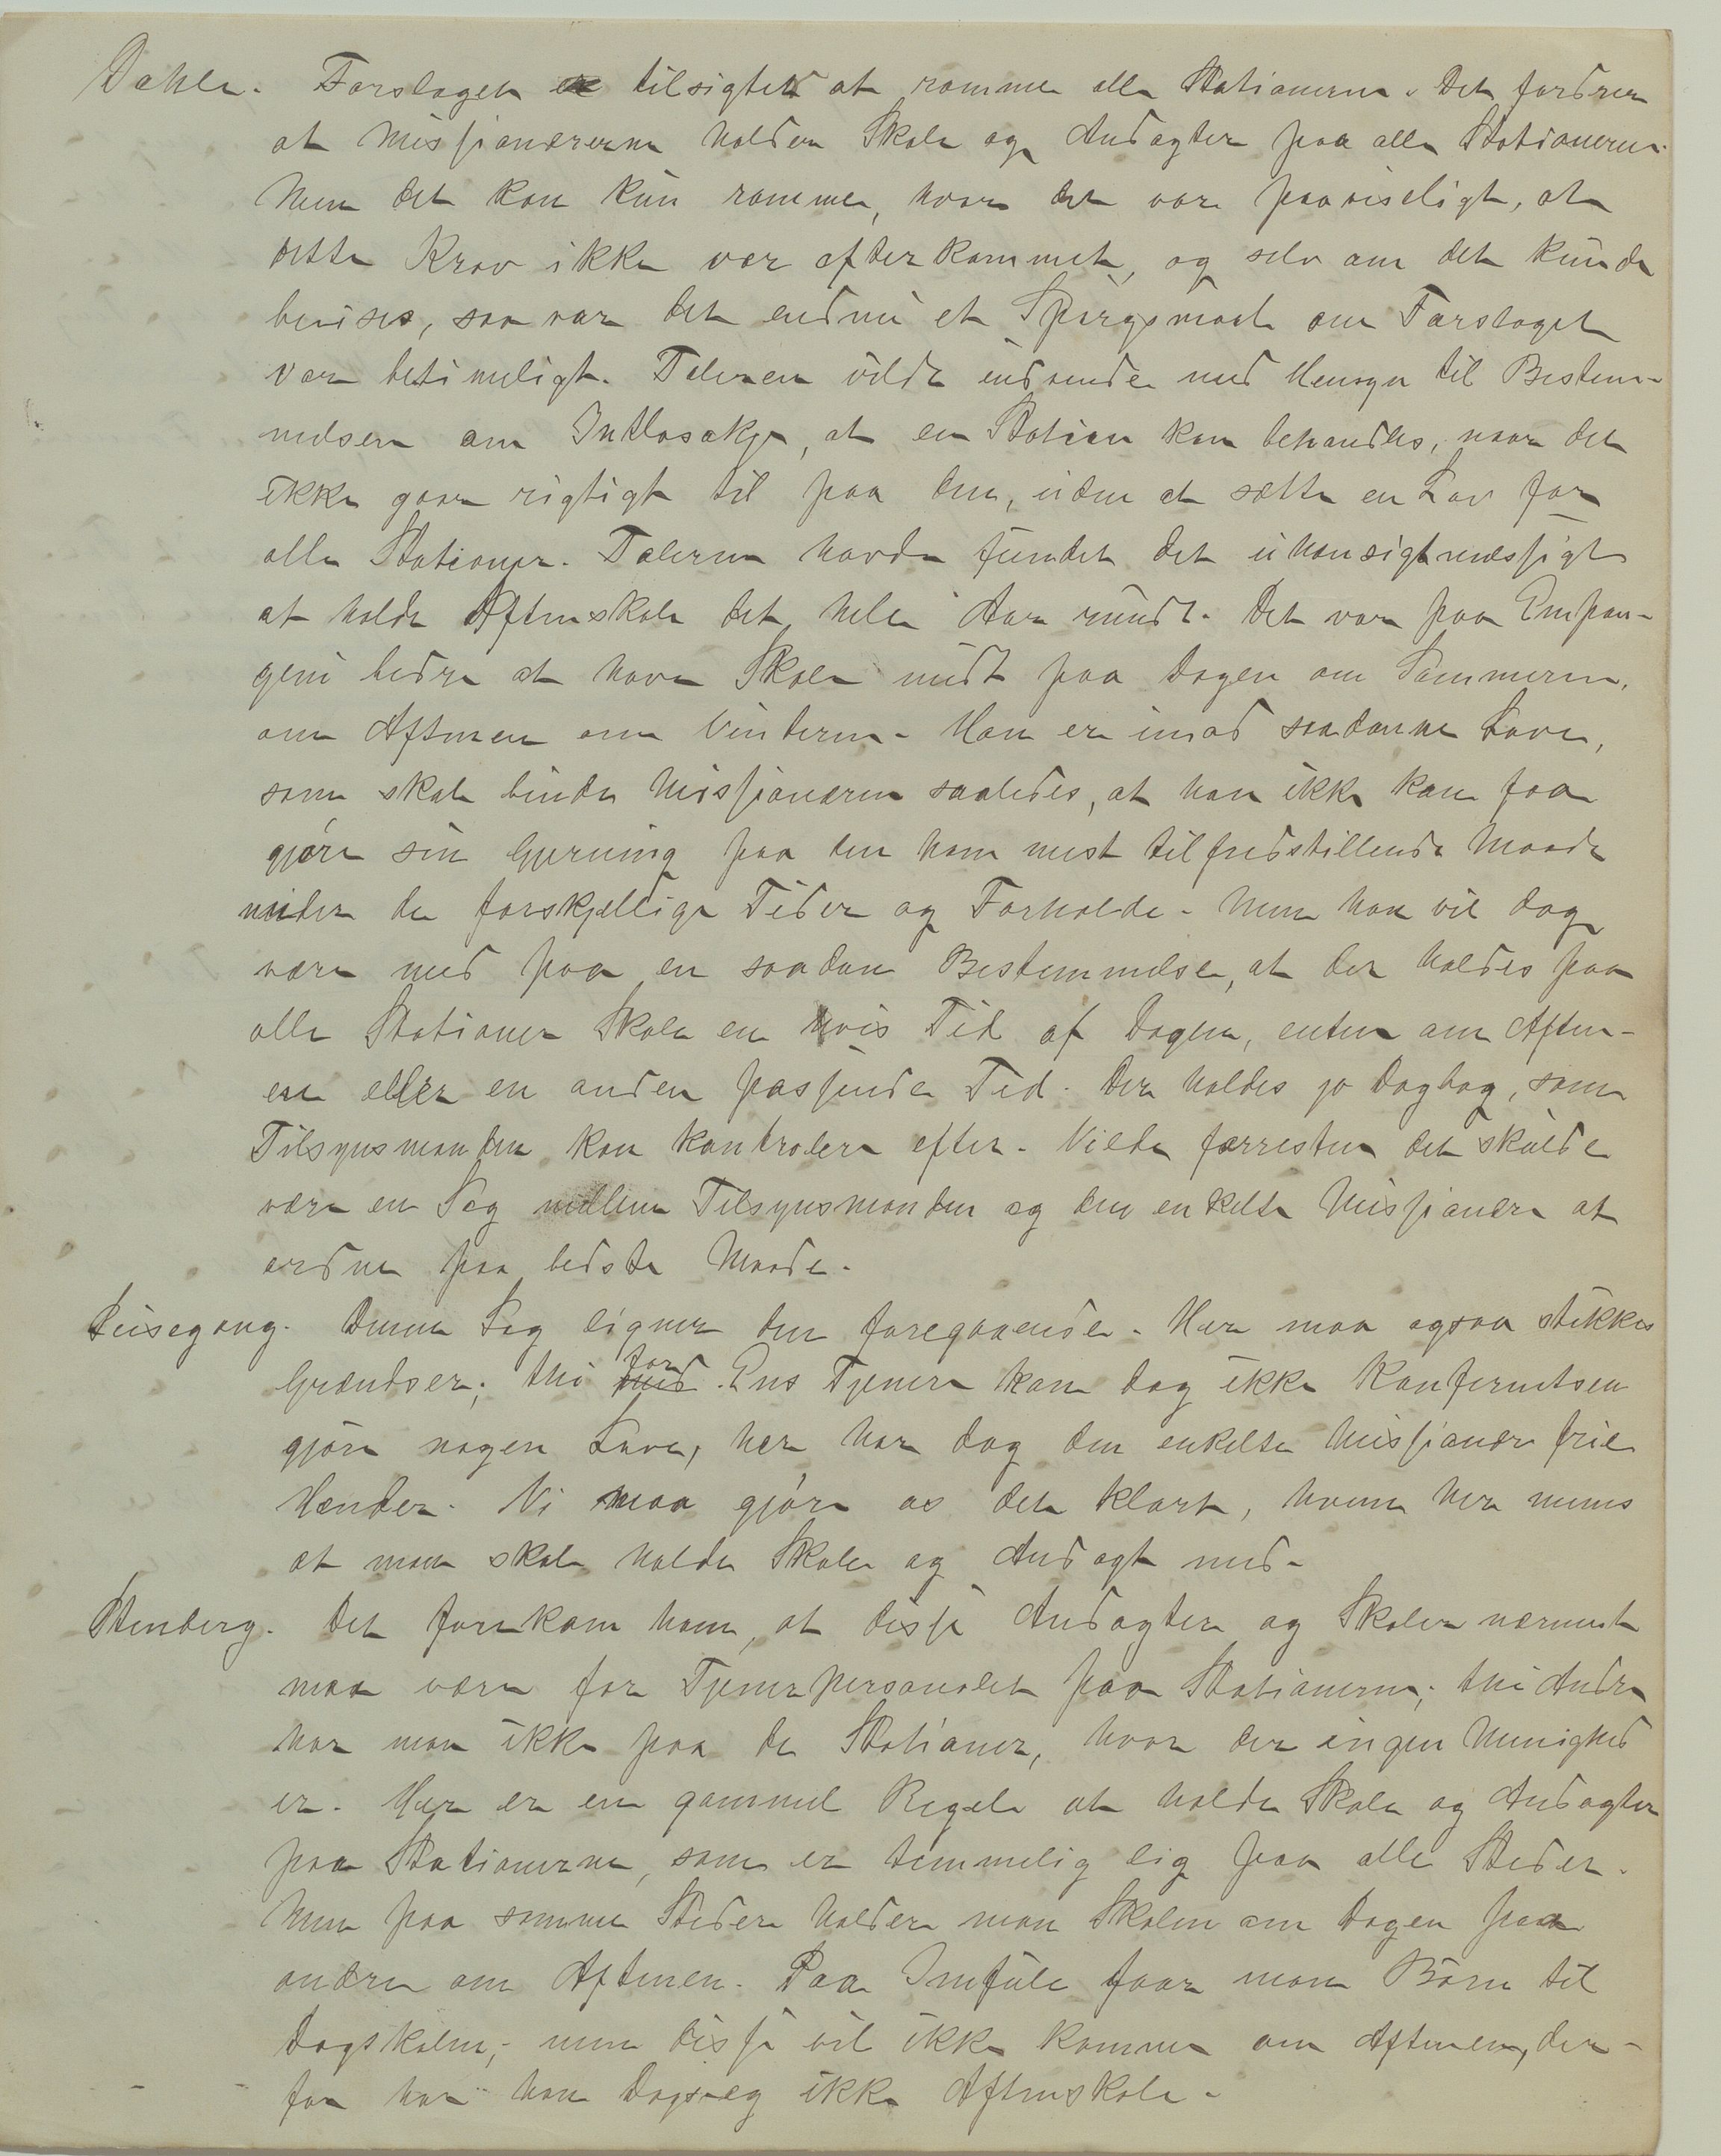 Dahle. Forslaget er tilsigtet at ramme alle Stationerne. Det fordrer
at Missionærerne holder Skole og Andagter paa alle Stationerne.
Men det kan kun ramme, hvor det var paaviseligt, at
dette Krav ikke var efterkommet, og selv om det kunde
bevises, saa var det endnu et Spørgsmaal om Forslaget
var betimeligt. Taleren vilde indvende med Hensyn til Bestem-
melsen om Intlosakja, at en Station kan behandles, naar det
ikke gaar rigtigt til paa den, uden at sætte en Lov for
alle Stationer. Taleren havde fundet det uhensigtmæssigt
at holde Aftenskole det hele Aar rundt. Det var paa Empan-
geni bedre at have Skole midt paa Dagen om Sommeren,
om Aftenen om Vinteren. Han er imod saadanne Love,
som skal binde Missionæren saaledes, at han ikke kan faa
gjøre sin Gjerning paa den ham mest tilfredstillende Maade
under de forskjellige Tider og Forholde. Men han vil dog
være med paa en saadan Bestemmelse, at der holdes paa
alle Stationer Skole en vis Tid af Dagen, enten om Aften-
en eller en anden passende Tid. Der holdes jo Dagbog, som
Tilsynsmanden kan kontrolere efter. Vilde forresten det skulde
være en Sag mellem Tilsynsmanden og den enkelte Missionær at
ordne paa bedste Maade.
Leisegang. Denne Sag ligner den foregaaende. Her maa ogsaa stikkes
Grændser; thi med for Ens Tjenere kan dog ikke Konferentsen
gjøre nogen Love, her har dog den enkelte Missionær frie
Hænder. Vi maa gjøre os det klart, hvem her menes
at man skal holde Skole og Andagt med.
Stenberg. Det forekom ham, at disse Andagter og Skoler nærmest
maa være for Tjenerpersonalet paa Stationerne; thi Andre
har man ikke paa de Stationer, hvor der ingen Menighed
er. Her er en gammel Regel at holde Skole og Andagter
paa Stationerne, som er temmelig lig paa alle Steder.
Men paa somme Steder holder man Skolen om Dagen paa
andre om Aftenen. Paa Imfule faar man Børn til
Dagskolen; men disse vil ikke komme om Aftenen, der-
for har han ikke Aftenskole.